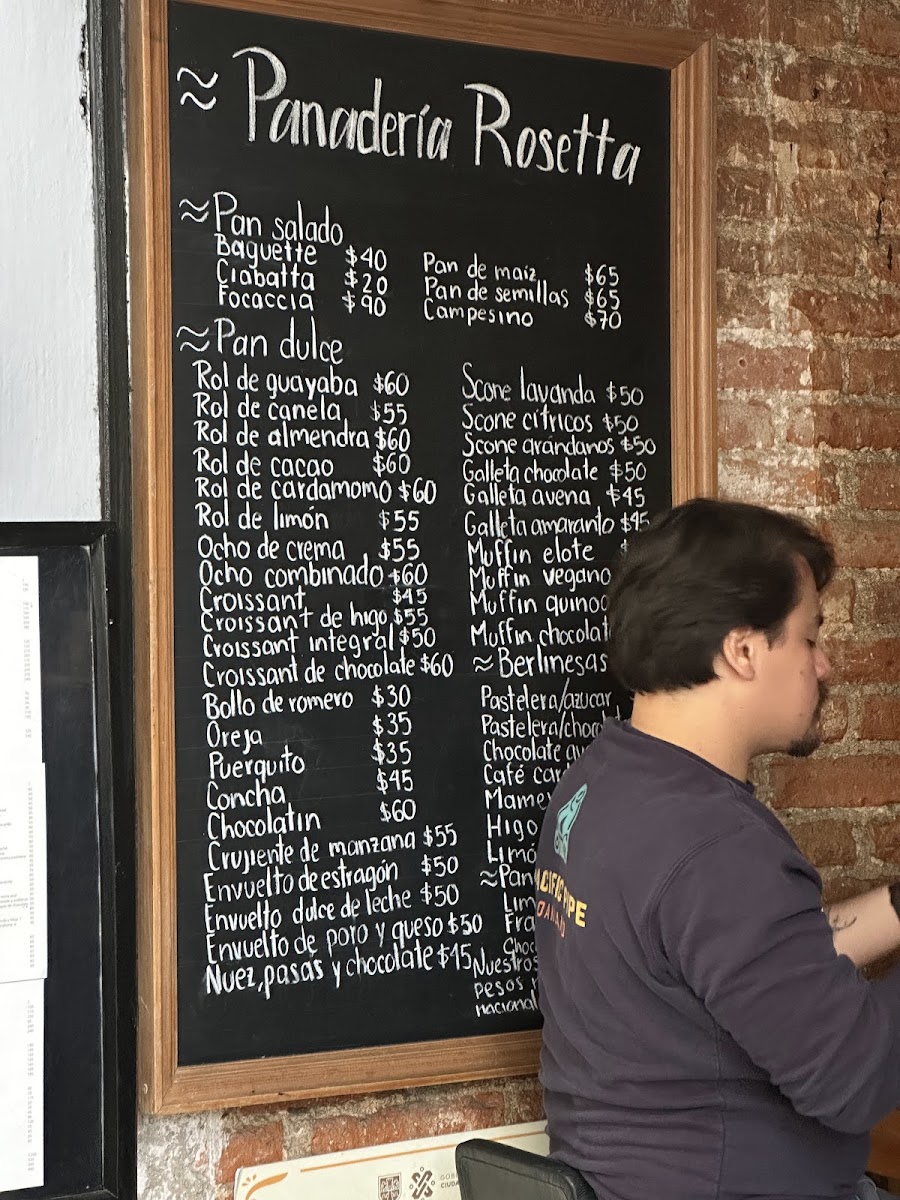 ≈ Panadería Rosetta
≈ Pan salado
Baguette $40
Ciabatta $20
Focaccia $90
Pan de maíz $65
Pan de semillas $65
Campesino $70
≈ Pan dulce
Rol de guayaba $60
Rol de canela $55
Rol de almendra $60
Rol de cacao $60
Rol de cardamomo $60
Rol de limón $55
Ocho de crema $55
Ocho combinado $60
Croissant $45
Croissant de higo $55
Croissant integral $50
Croissant de chocolate $60
Bollo de romero $30
Oreja $35
Puerquito $35
Concha $45
Chocolatín $60
Crujiente de manzana $55
Envuelto de estragón $50
Envuelto dulce de leche $50
Envuelto de poro y queso $50
Nuez, pasas y chocolate $45
Scone lavanda $50
Scone cítricos $50
Scone arándanos $50
Galleta chocolate $50
Galleta avena $45
Galleta amaranto $45
Muffin elote
Muffin vegano
Muffin quino
Muffin chocolat
≈ Berlinesas
Pastelera/azucar
Pastelera/choco
Chocolate
Café car
Mame
Higo
Limó
≈ Pan
Lim
Fra
Choc
Nuestros
pesos
nacional